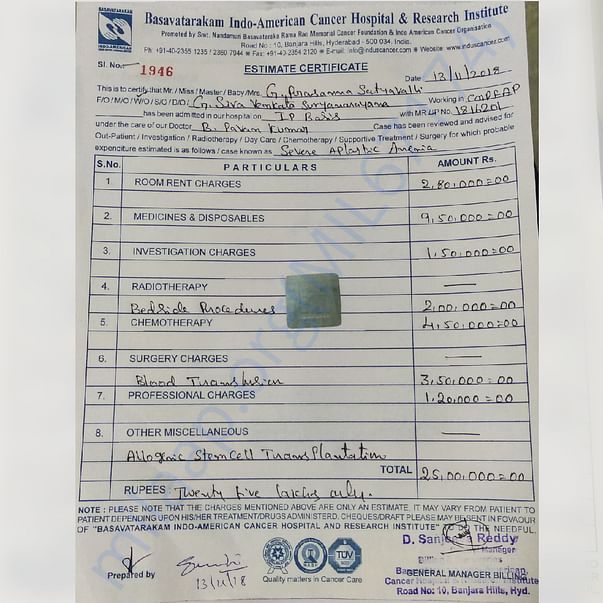 BASAVATARAKAM
INDO-AMERICAN
Basavatarakam Indo-American Cancer Hospital & Research Institute
Promoted by Smt. Nandamuri Basavataraka Rama Rao Memorial Cancer Foundation & Indo American Cancer Organisation
Road No: 10, Banjara Hills, Hyderabad - 500 034. India.
Ph: +91-40-2355 1235 / 2360 7944 Fax: +91-40-2354 2120 E-mail: info@induscancer.com Website: www.induscancer.com
Sl. No. 1946
ESTIMATE CERTIFICATE
Date: 13/11/2018
This is to certify that Mr. / Miss / Master / Baby /Mrs. G. Prasanna Satyavalli
F/O / M/O / W/O / S/O / D/O: G. Siva Venkata Suryanarayana Working in
has been admitted in our hospital on IP Basis with MR / IP No. 1816201
under the care of our Doctor B. Pavan Kumar Case has been reviewed and advised for
Out-Patient / Investigation / Radiotherapy / Day Care / Chemotherapy / Supportive Treatment / Surgery for which probable
expenditure estimated is as follows / case known as Severe Aplastic Anemia
S.No. PARTICULARS AMOUNT Rs.
1 ROOM RENT CHARGES 2,80,000=00
2. MEDICINES & DISPOSABLES 9,50,000=00
3. INVESTIGATION CHARGES 1,50,000=00
4. RADIOTHERAPY —
Bedside Procedures 2,00,000=00
5. CHEMOTHERAPY 4,50,000=00
6. SURGERY CHARGES —
Blood Transfusion 3,50,000=00
7. PROFESSIONAL CHARGES 1,20,000=00
8. OTHER MISCELLANEOUS —
Allogenic Stem Cell Transplantation
TOTAL 25,00,000=00
RUPEES: Twenty five lakhs only.
NOTE : PLEASE NOTE THAT THE CHARGES MENTIONED ABOVE ARE ONLY AN ESTIMATE. IT MAY VARY FROM PATIENT TO
PATIENT DEPENDING UPON HIS/HER TREATMENT/DRUGS ADMINISTERD. CHEQUES/DRAFT PLEASE MAY BE SENT IN FOVAOUR
OF "BASAVATARAKAM INDO-AMERICAN CANCER HOSPITAL AND RESEARCH INSTITUTE" TO DO THE NEEDFUL.
D. Reddy
Manager
Prepared by
13/11/18
TUV
Quality matters in Cancer Care
GENERAL MANAGER BILLING
Cancer Hospital Institute
Road No: 10, Banjara Hills, Hyd.